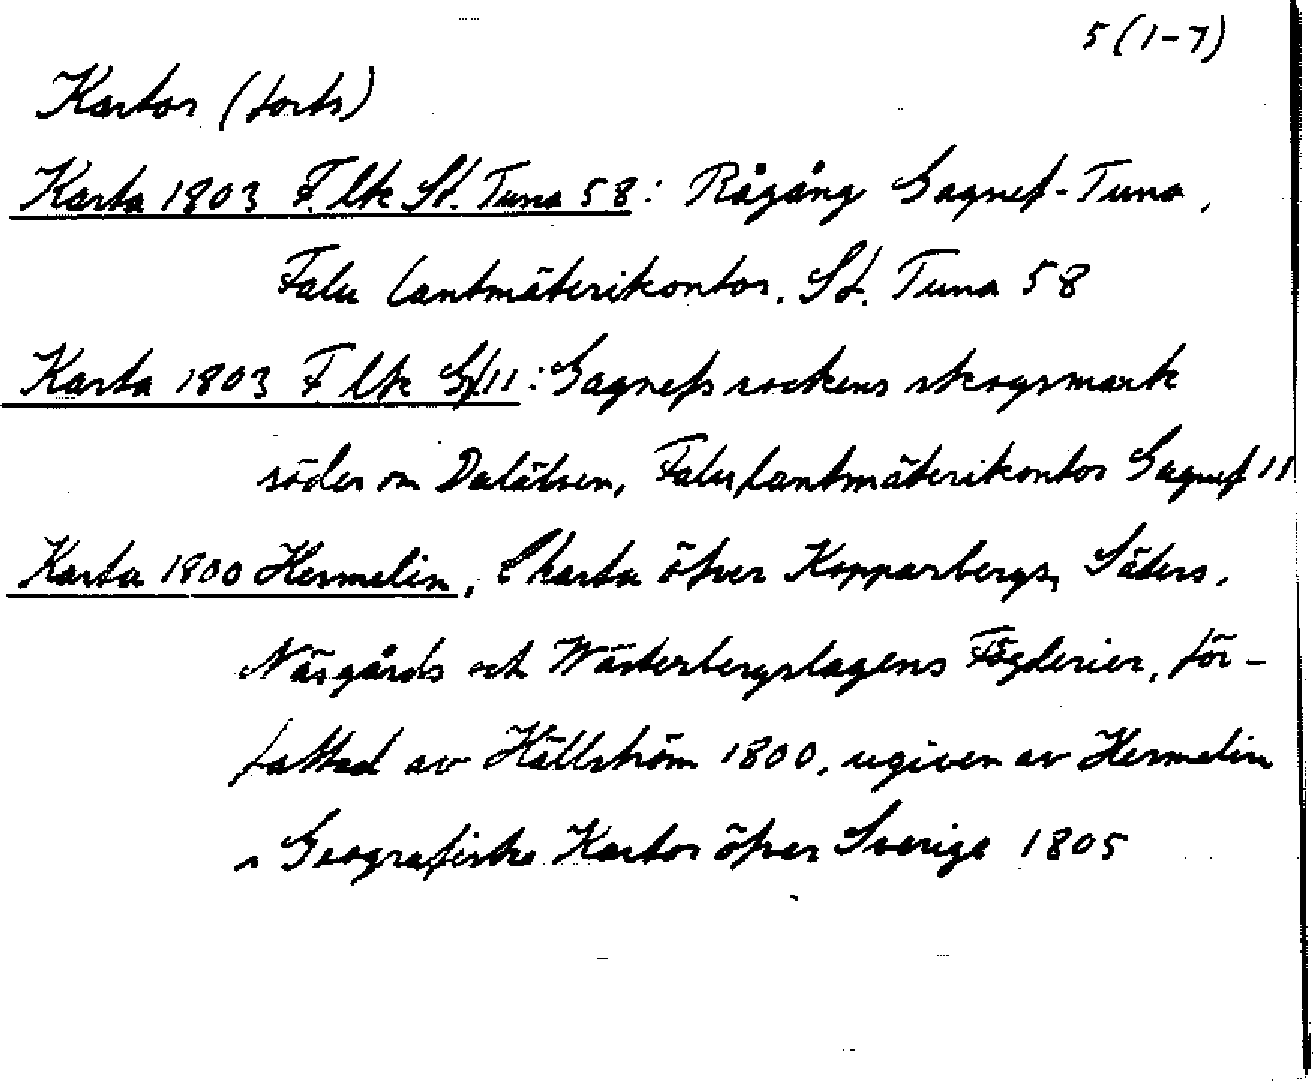 5 (1-7)
Kartor (forts)
Karta 1803 F. lk St. Tuna 58: Rågång Gagnef-Tuna,
Falu lantmäterikontor. St. Tuna 58
Karta 1803 F lk Gf 11: Gagnefs sockens skogsmark
söder om Dalälven, Falu lantmäterikontor Gagnef 11
Karta 1800 Hermelin, Charta öfver Kopparbergs, Säters,
Näsgårds och Wästerbergslagens Fögderier, för-
fattad av Hällström 1800, ugiven av Hermelin
Geografiske Kartor öfver Sverige 1805